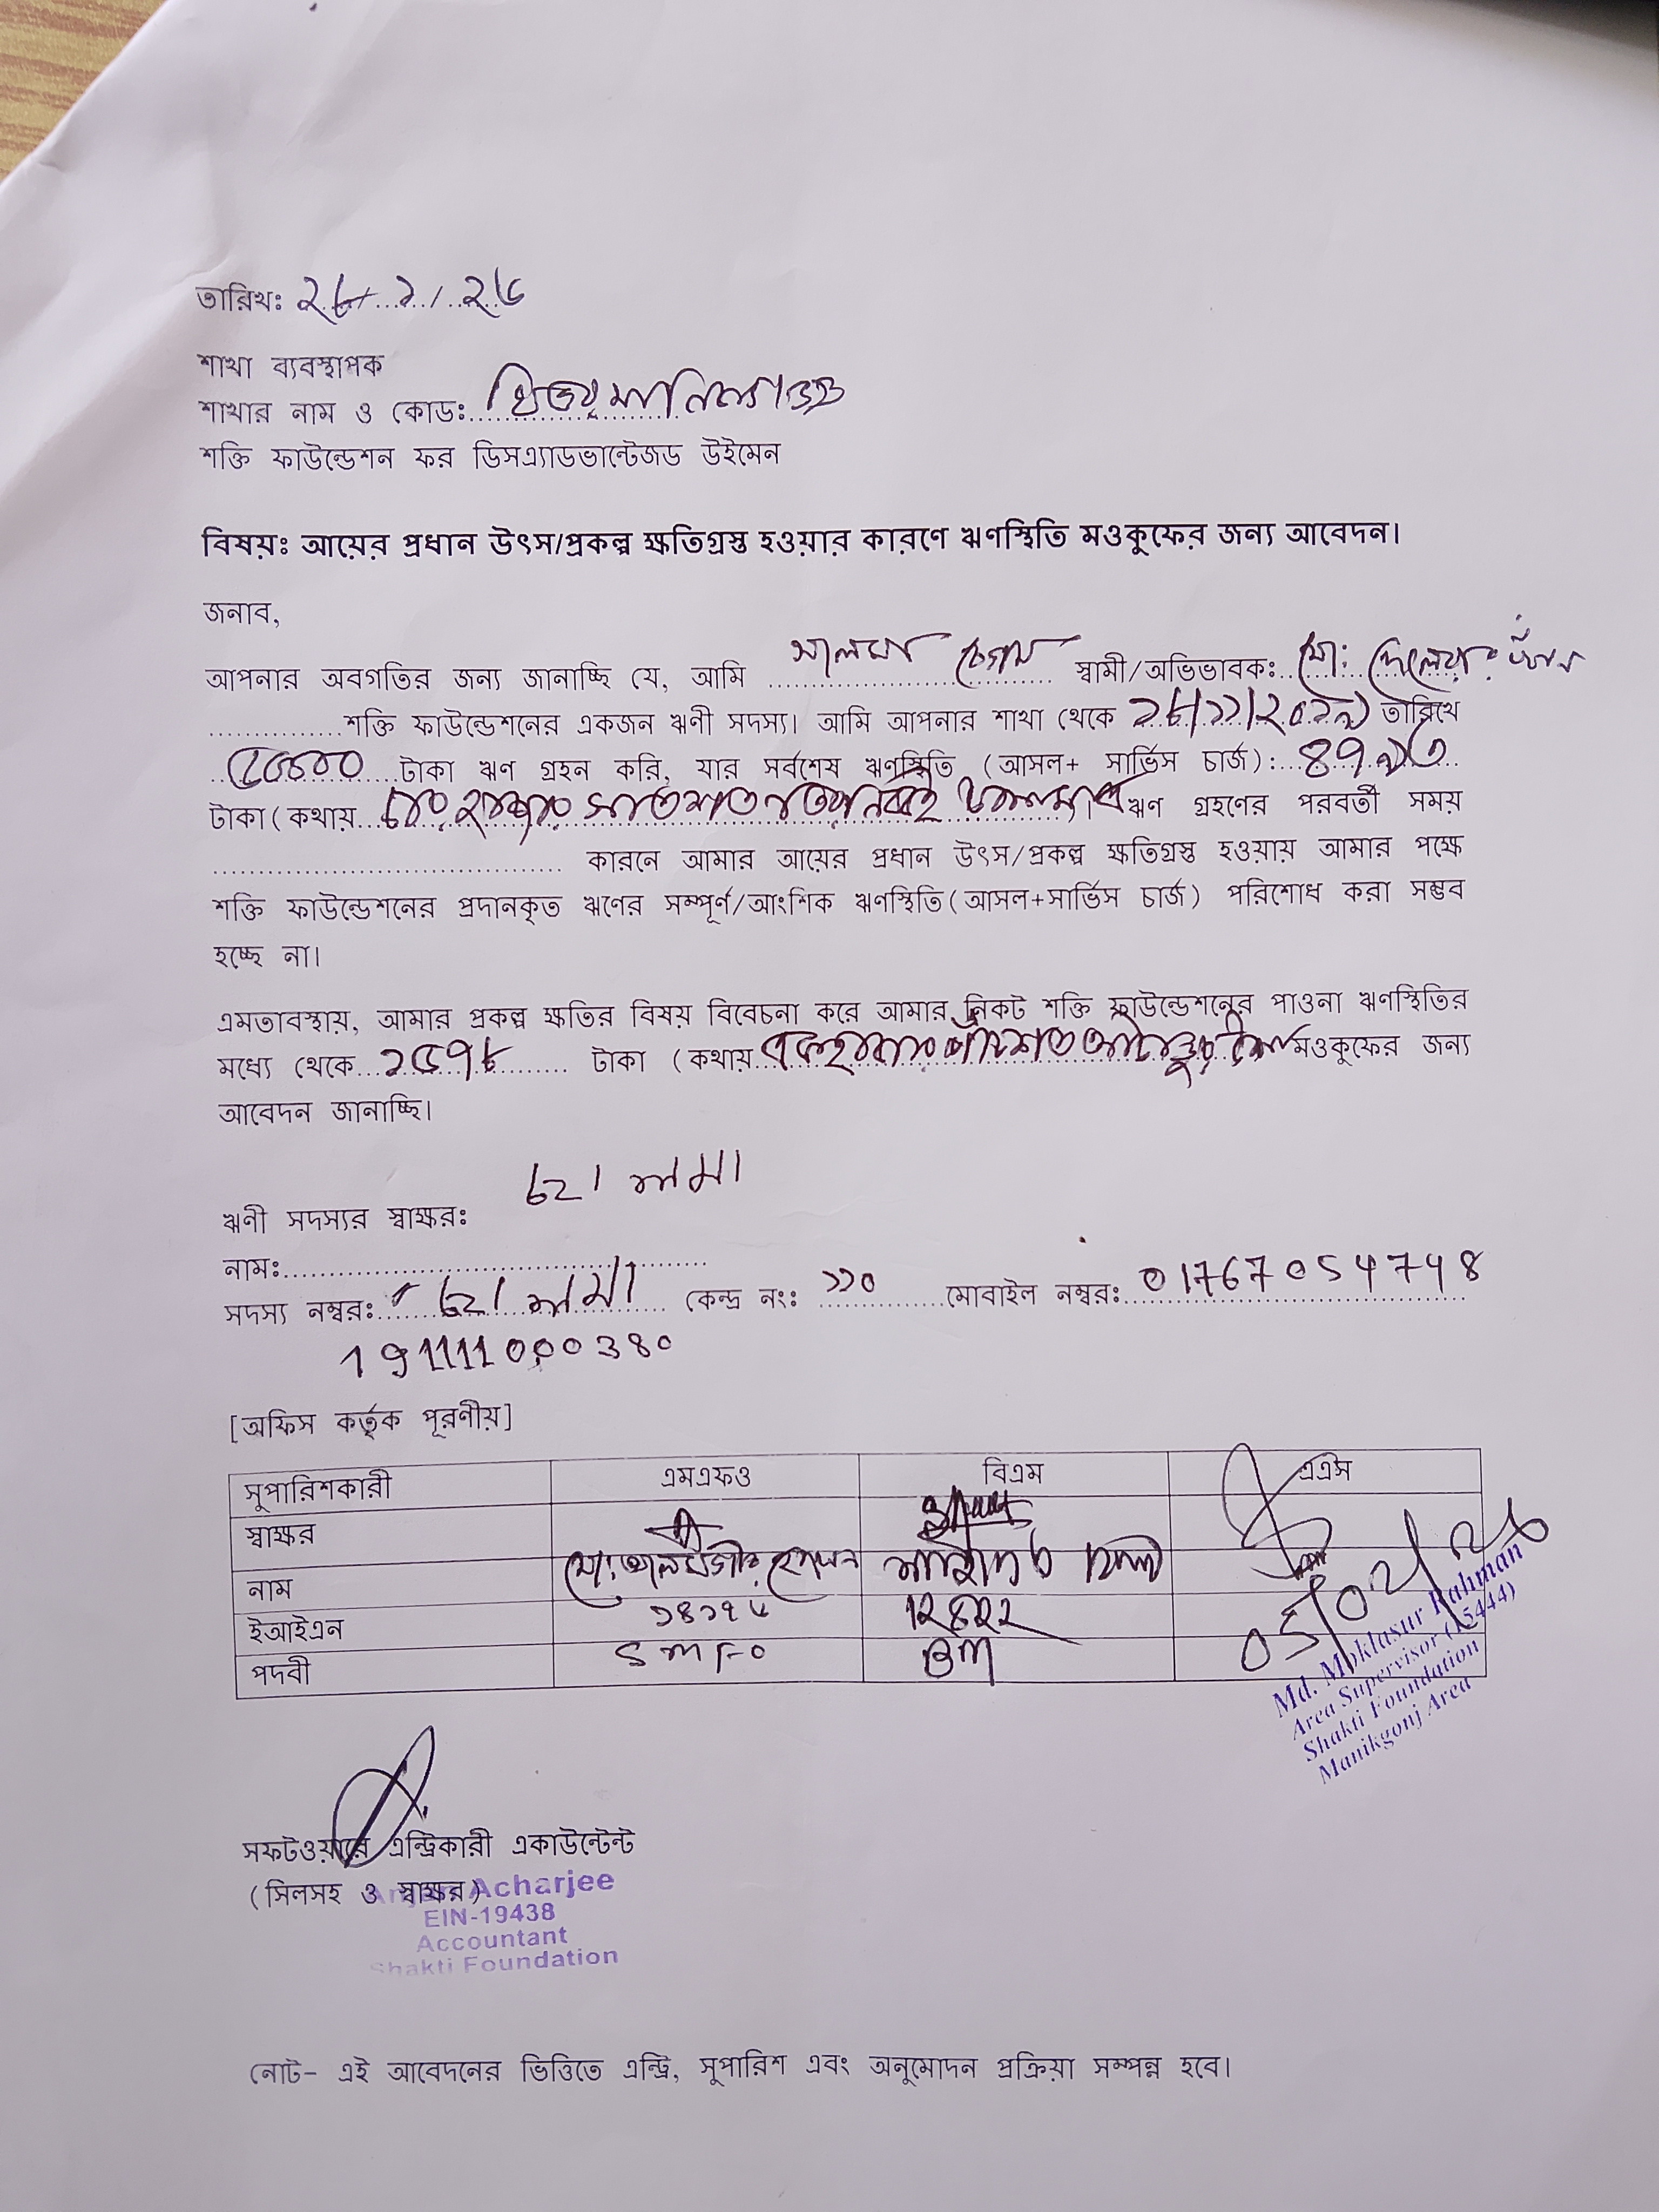 তারিখঃ ২৮/১/২৬
শাখা ব্যবস্থাপক
শাখার নাম ও কোড:
শক্তি ফাউন্ডেশন ফর ডিসএ্যাডভান্টেজড উইমেন
বিষয়ঃ আয়ের প্রধান উৎস/প্রকল্প ক্ষতিগ্রস্ত হওয়ার কারণে ঋণস্থিতি মওকুফের জন্য আবেদন।
জনাব,
আপনার অবগতির জন্য জানাচ্ছি যে, আমি সালমা বেগম স্বামী/অভিভাবক: মো:
শক্তি ফাউন্ডেশনের একজন ঋণী সদস্য। আমি আপনার শাখা থেকে ১৮/১১/২০১৯ তারিখে
টাকা ঋণ গ্রহন করি, যার সর্বশেষ ঋণস্থিতি (আসল+ সার্ভিস চার্জ):
টাকা(কথায় ঋণ গ্রহণের পরবর্তী সময়
কারনে আমার আয়ের প্রধান উৎস/প্রকল্প ক্ষতিগ্রস্ত হওয়ায় আমার পক্ষে
শক্তি ফাউন্ডেশনের প্রদানকৃত ঋণের সম্পূর্ণ/আংশিক ঋণস্থিতি(আসল+সার্ভিস চার্জ) পরিশোধ করা সম্ভব
হচ্ছে না।
এমতাবস্থায়, আমার প্রকল্প ক্ষতির বিষয় বিবেচনা করে আমার নিকট শক্তি ফাউন্ডেশনের পাওনা ঋণস্থিতির
মধ্যে থেকে ১৫৭৮ টাকা (কথায় মওকুফের জন্য
আবেদন জানাচ্ছি।
ঋণী সদস্যর স্বাক্ষর:
নাম:
সদস্য নম্বর: কেন্দ্র নং: ১১০ মোবাইল নম্বর: 01767054748
191111000380
[অফিস কর্তৃক পূরণীয়]
সুপারিশকারী এমএফও বিএম এএস
স্বাক্ষর
নাম
ইআইএন ১৪১৭৬ 12822
পদবী SMFO BM
05/02/26
Md. Moklasur Rahman
Area Supervisor (15444)
Shakti Foundation
Manikgonj Area
সফটওয়ারে এন্ট্রিকারী একাউন্টেন্ট
(সিলসহ ও স্বাক্ষর)
Acharjee
EIN-19438
Accountant
Shakti Foundation
নোট- এই আবেদনের ভিত্তিতে এন্ট্রি, সুপারিশ এবং অনুমোদন প্রক্রিয়া সম্পন্ন হবে।